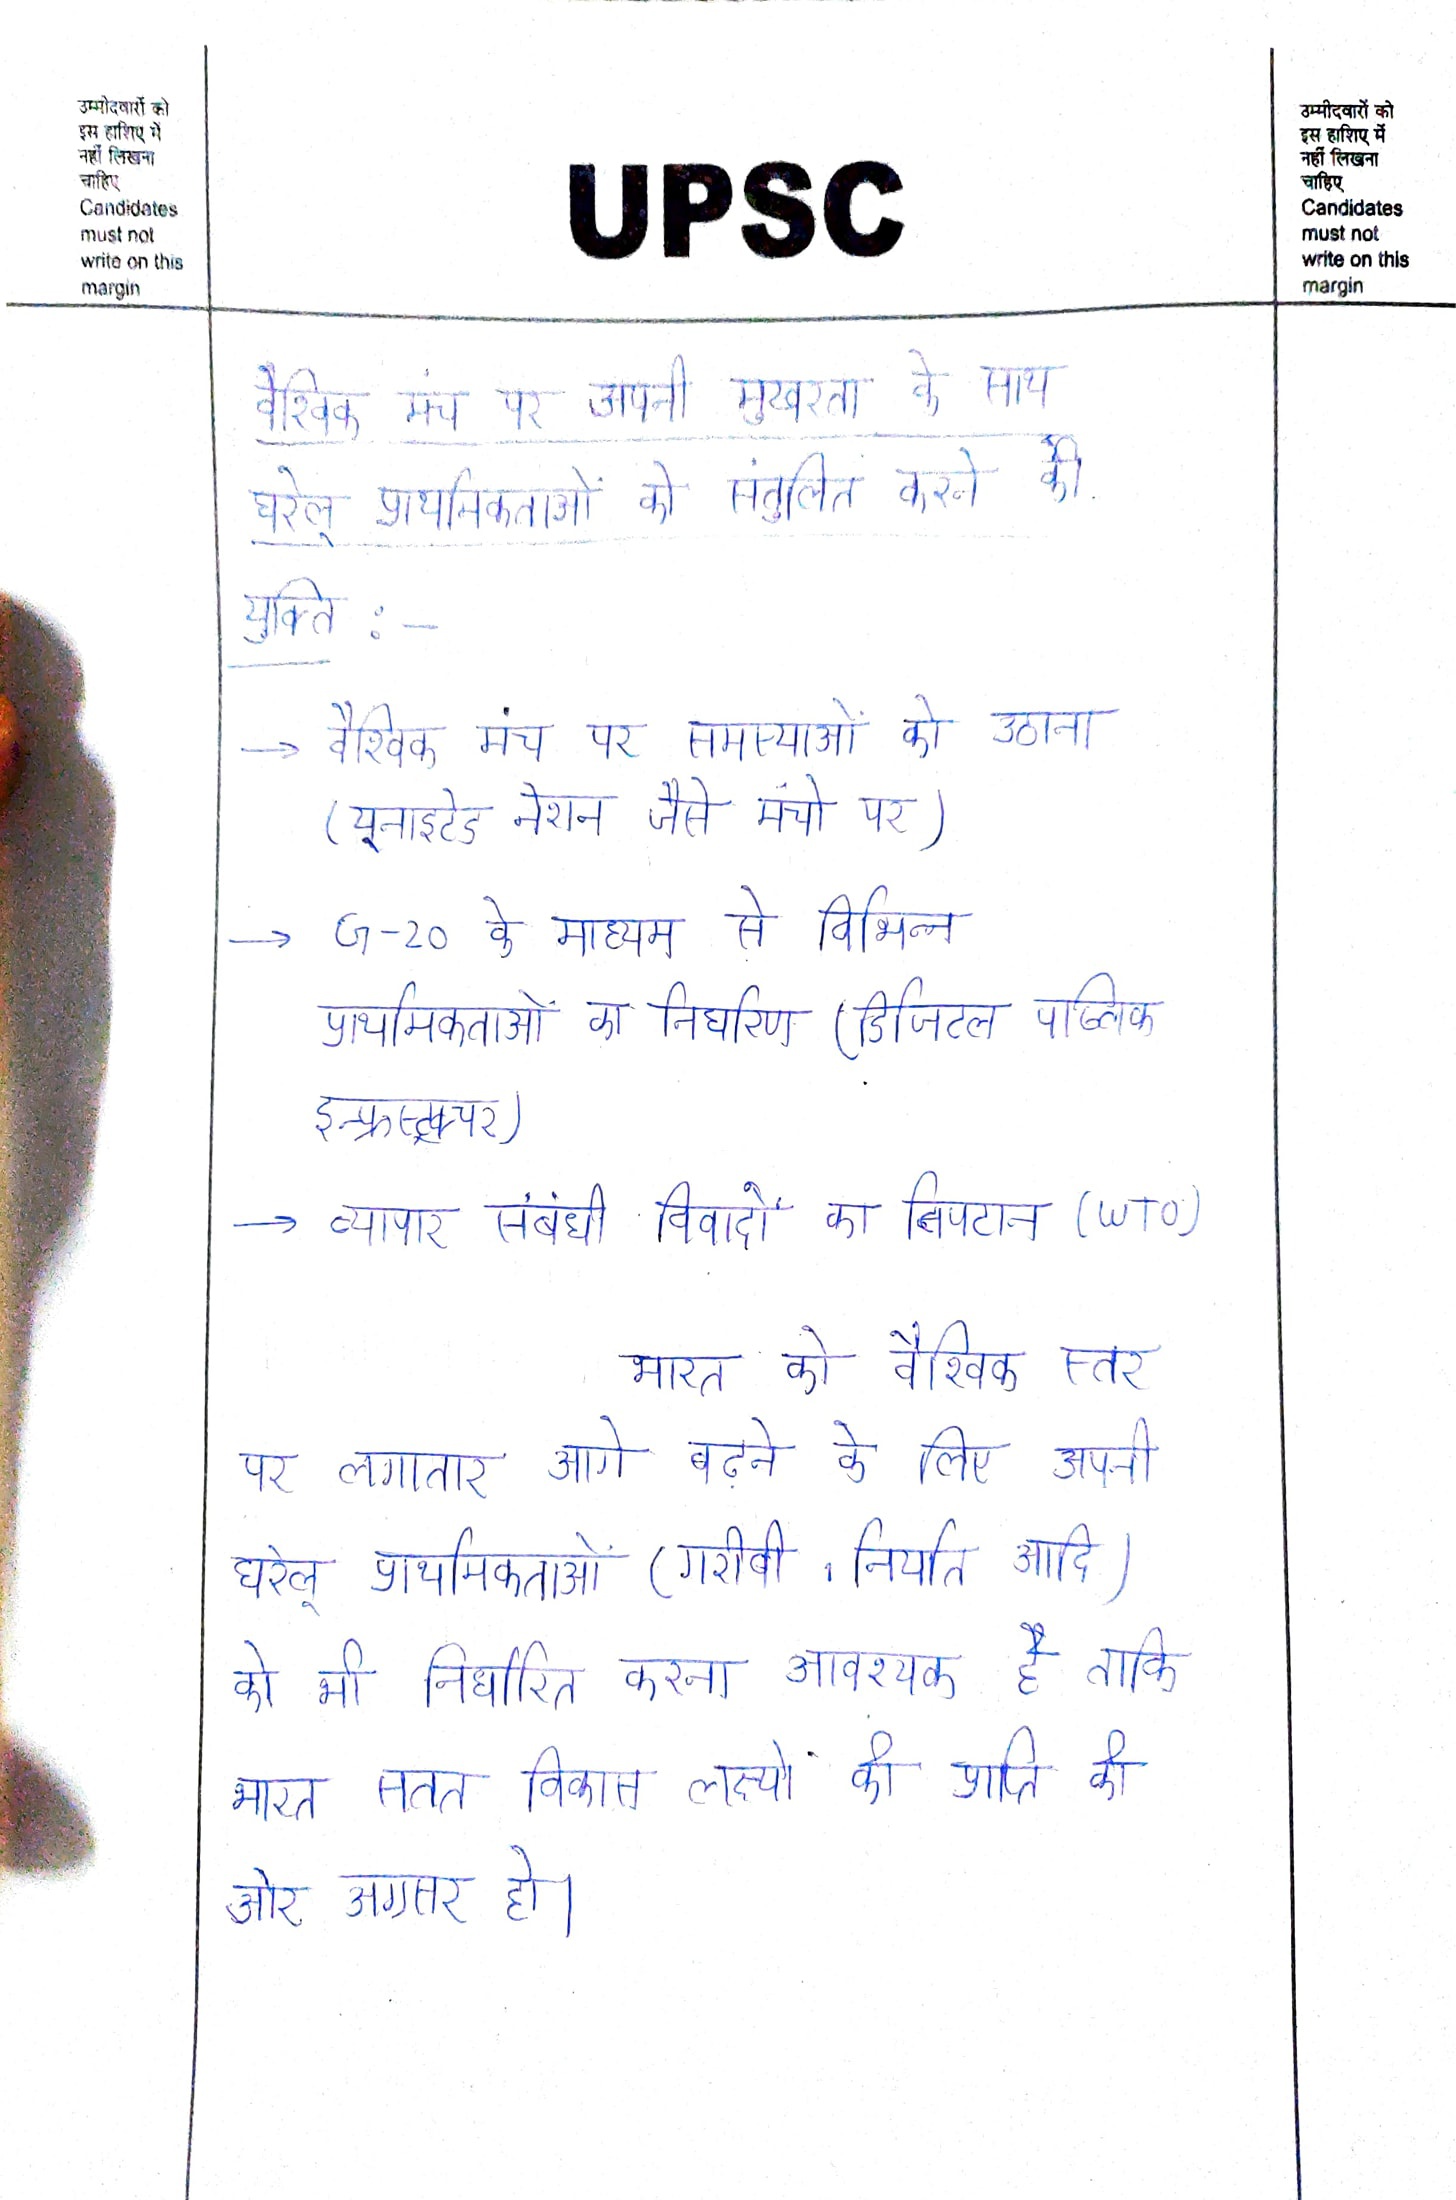 उम्मीदवारों को
इस हाशिए में
नहीं लिखना
चाहिए
Candidates
must not
write on this
margin
UPSC
उम्मीदवारों को
इस हाशिए में
नहीं लिखना
चाहिए
Candidates
must not
write on this
margin
वैश्विक मंच पर अपनी मुखरता के साथ
घरेलू प्राथमिकताओं को संतुलित करने की
युक्ति :-
→ वैश्विक मंच पर समस्याओं को उठाना
(यूनाइटेड नेशन जैसे मंचो पर)
→ G-20 के माध्यम से विभिन्न
प्राथमिकताओं का निर्धारण (डिजिटल पब्लिक
इन्फ्रास्ट्रक्चर)
→ व्यापार संबंधी विवादों का निपटान (WTO)
भारत को वैश्विक स्तर
पर लगातार आगे बढ़ने के लिए अपनी
घरेलू प्राथमिकताओं (गरीबी, निर्यात आदि)
को भी निर्धारित करना आवश्यक है ताकि
भारत सतत विकास लक्ष्यों की प्राप्ति की
ओर अग्रसर हो।